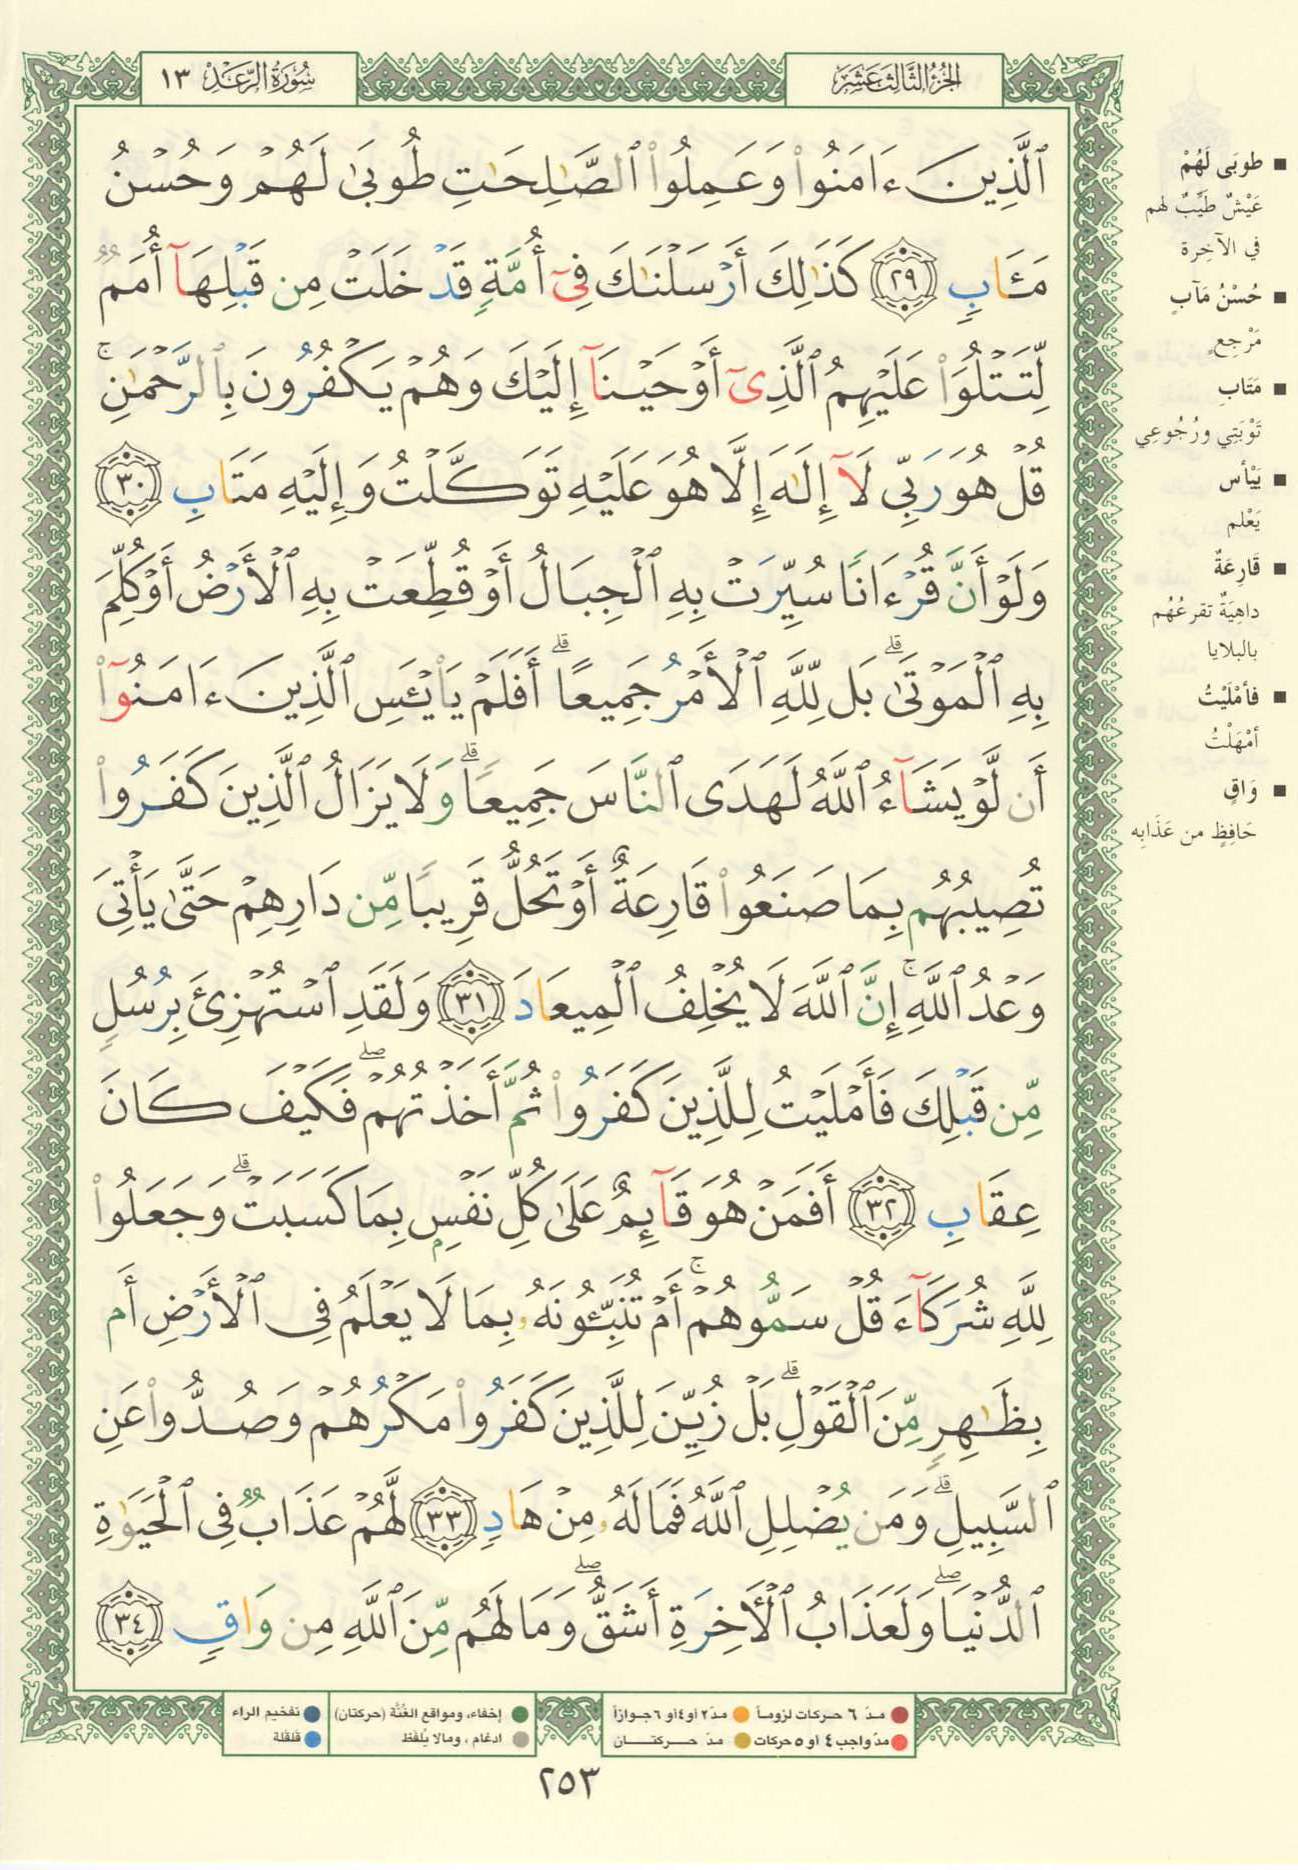 الجزء الثالث عشر
سورة الرعد ١٣
ٱلَّذِينَ ءَامَنُوا۟ وَعَمِلُوا۟ ٱلصَّـٰلِحَـٰتِ طُوبَىٰ لَهُمْ وَحُسْنُ
مَـَٔابٍ ﴿٢٩﴾ كَذَٰلِكَ أَرْسَلْنَـٰكَ فِىٓ أُمَّةٍ قَدْ خَلَتْ مِن قَبْلِهَآ أُمَمٌ
لِّتَتْلُوَا۟ عَلَيْهِمُ ٱلَّذِىٓ أَوْحَيْنَآ إِلَيْكَ وَهُمْ يَكْفُرُونَ بِٱلرَّحْمَـٰنِ ۚ
قُلْ هُوَ رَبِّى لَآ إِلَـٰهَ إِلَّا هُوَ عَلَيْهِ تَوَكَّلْتُ وَإِلَيْهِ مَتَابِ ﴿٣٠﴾
وَلَوْ أَنَّ قُرْءَانًا سُيِّرَتْ بِهِ ٱلْجِبَالُ أَوْ قُطِّعَتْ بِهِ ٱلْأَرْضُ أَوْ كُلِّمَ
بِهِ ٱلْمَوْتَىٰ ۗ بَل لِّلَّهِ ٱلْأَمْرُ جَمِيعًا ۗ أَفَلَمْ يَا۟يْـَٔسِ ٱلَّذِينَ ءَامَنُوٓا۟
أَن لَّوْ يَشَآءُ ٱللَّهُ لَهَدَى ٱلنَّاسَ جَمِيعًا ۗ وَلَا يَزَالُ ٱلَّذِينَ كَفَرُوا۟
تُصِيبُهُم بِمَا صَنَعُوا۟ قَارِعَةٌ أَوْ تَحُلُّ قَرِيبًا مِّن دَارِهِمْ حَتَّىٰ يَأْتِىَ
وَعْدُ ٱللَّهِ ۚ إِنَّ ٱللَّهَ لَا يُخْلِفُ ٱلْمِيعَادَ ﴿٣١﴾ وَلَقَدِ ٱسْتُهْزِئَ بِرُسُلٍ
مِّن قَبْلِكَ فَأَمْلَيْتُ لِلَّذِينَ كَفَرُوا۟ ثُمَّ أَخَذْتُهُمْ ۖ فَكَيْفَ كَانَ
عِقَابِ ﴿٣٢﴾ أَفَمَنْ هُوَ قَآئِمٌ عَلَىٰ كُلِّ نَفْسٍۭ بِمَا كَسَبَتْ ۗ وَجَعَلُوا۟
لِلَّهِ شُرَكَآءَ قُلْ سَمُّوهُمْ ۚ أَمْ تُنَبِّـُٔونَهُۥ بِمَا لَا يَعْلَمُ فِى ٱلْأَرْضِ أَم
بِظَـٰهِرٍ مِّنَ ٱلْقَوْلِ ۗ بَلْ زُيِّنَ لِلَّذِينَ كَفَرُوا۟ مَكْرُهُمْ وَصُدُّوا۟ عَنِ
ٱلسَّبِيلِ ۗ وَمَن يُضْلِلِ ٱللَّهُ فَمَا لَهُۥ مِنْ هَادٍ ﴿٣٣﴾ لَّهُمْ عَذَابٌ فِى ٱلْحَيَوٰةِ
ٱلدُّنْيَا ۖ وَلَعَذَابُ ٱلْـَٔاخِرَةِ أَشَقُّ ۖ وَمَا لَهُم مِّنَ ٱللَّهِ مِن وَاقٍ ﴿٣٤﴾
■ طوبَى لَهُمْ
عَيْشٌ طَيِّبٌ لهم
في الآخِرة
■ حُسْنُ مَآبٍ
مَرْجِعٍ
■ مَتَابِ
تَوْبَتِي ورُجُوعِي
■ يَيْأس
يَعْلم
■ قَارِعَةٌ
داهِيَةٌ تقرعُهُم
بالبلايا
■ فأمْلَيْتُ
أمْهَلْتُ
■ وَاقٍ
حَافِظٍ من عَذَابِه
مدّ ٦ حركات لزوماً مدّ ٢ أو ٤ أو ٦ جوازاً
مدّ واجب ٤ أو ٥ حركات مدّ حركتان
إخفاء، ومواقع الغُنَّة (حركتان)
ادغام، وما لا يُلفَظ
تفخيم الراء
قلقلة
٢٥٣